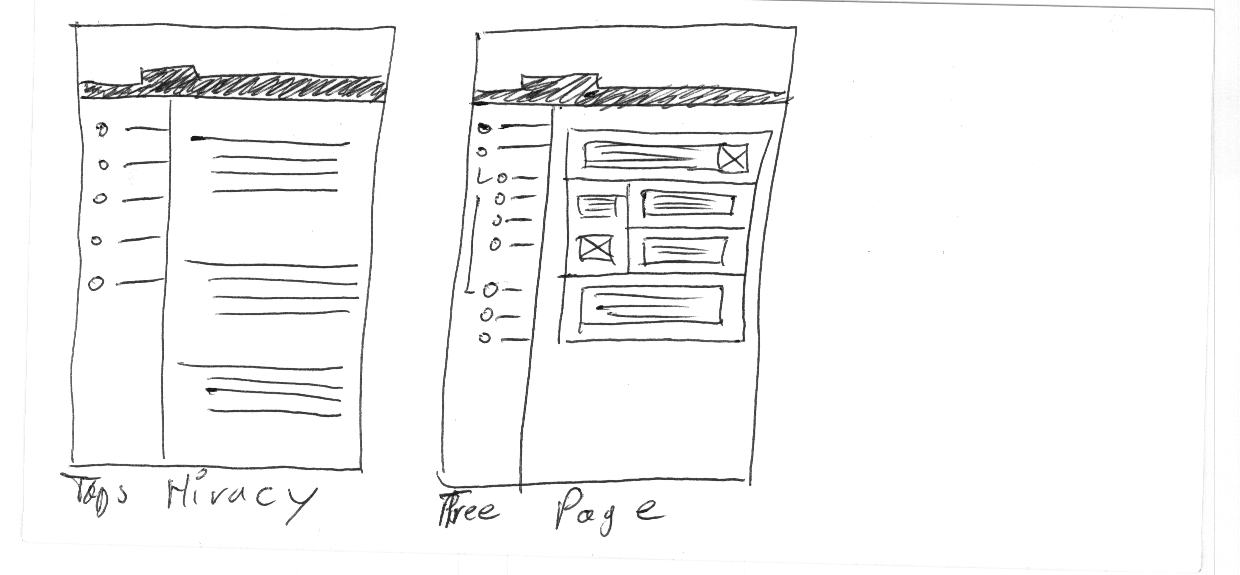 Tops Hiracy
Three Page